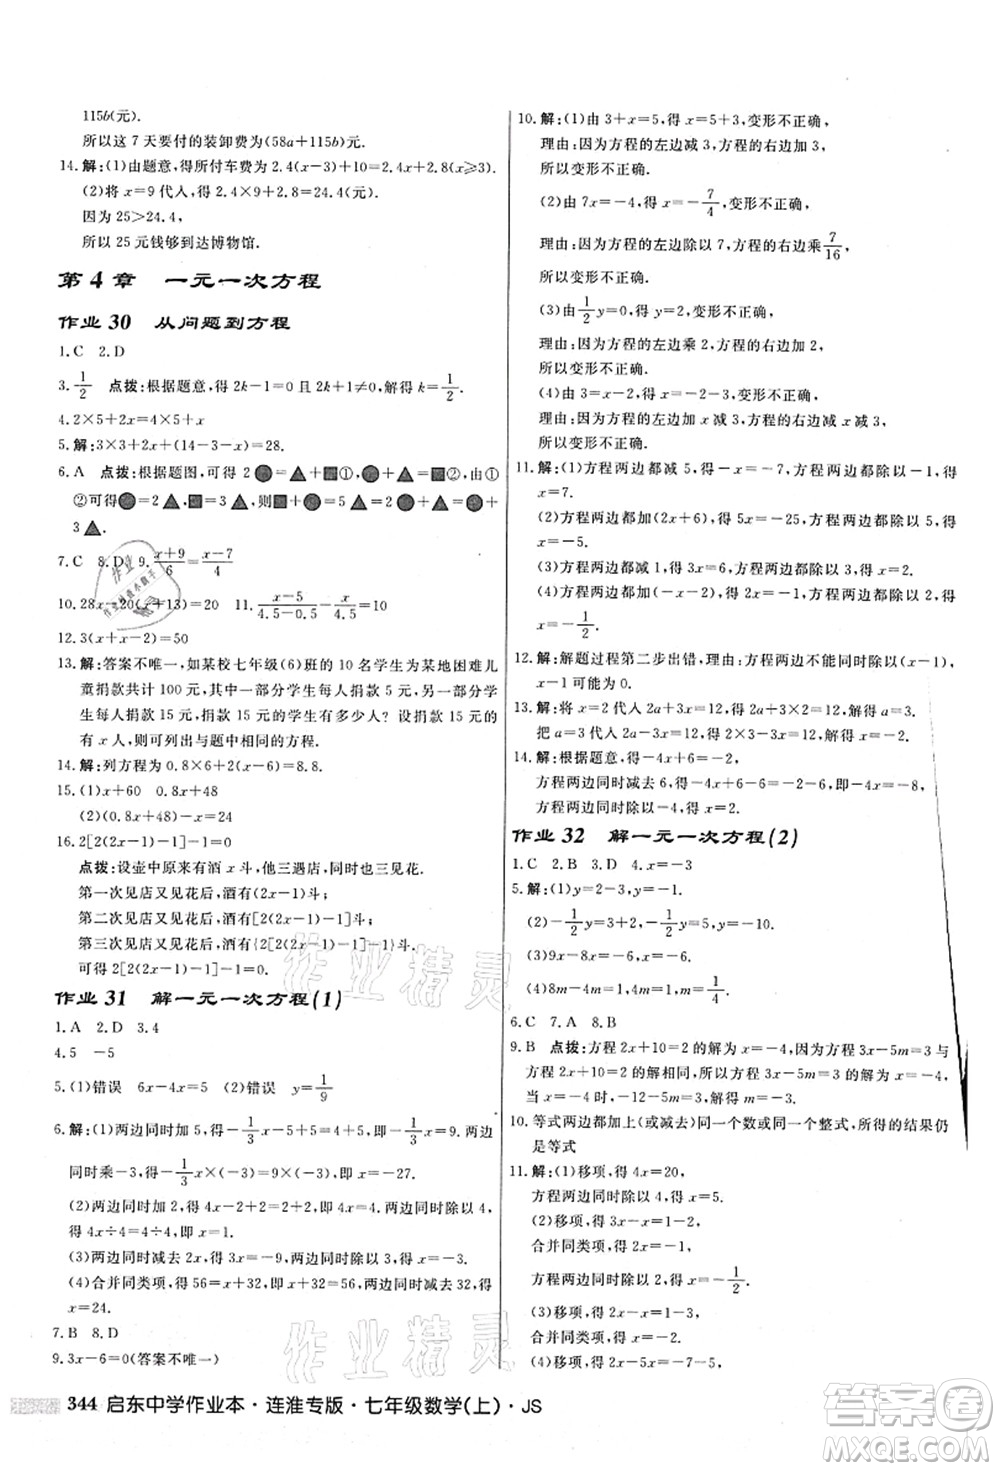 115b(元).
所以这 7 天要付的装卸费为(58a+115b)元.
14.解:(1)由题意,得所付车费为 2.4(x-3)+10=2.4x+2.8(x⩾3).
(2)将 x=9 代人,得 2.4×9+2.8=24.4(元).
因为 25>24.4,
所以 25 元钱够到达博物馆.
第 4 章 一元一次方程
作业 30 从问题到方程
1.C 2.D
3. 1/2 点拨:根据题意,得 2k-1=0 且 1-k≠0,解得 k=1/2.
4. 2×5+2x=4×5+x
5.解:3×3+2x+(14-3-x)=28.
6.A 点拨:根据题图,可得 2●=▲+■①,●+▲=■②,由①
②可得●=2▲,■=3▲,则■+●=2●+▲=●+●+▲=●+
3▲.
7.C 8.D 9. (x+9)/6=(x-7)/4
10. 28x-20(x+13)=20 11. (x-5)/(4.5-0.5)-x/4.5=10
12. 3(x+x-2)=50
13.解:答案不唯一,如某校七年级(6)班的 10 名学生为某地困难儿
童捐款共计 100 元,其中一部分学生每人捐款 5 元,另一部分学
生每人捐款 15 元,捐款 15 元的学生有多少人? 设捐款 15 元的
有 x 人,则可列出与题中相同的方程.
14.解:列方程为 0.8×6+2x=8.8.
15.(1)x+60 0.8x+48
(2)(0.8x+48)-x=24
16. 2[2(2x-1)-1]-1=0
点拨:设壶中原来有酒 x 斗,三遇店,同时也三见花.
第一次见店又见花后,酒有(2x-1)斗;
第二次见店又见花后,酒有[2(2x-1)-1]斗;
第三次见店又见花后,酒有{2[2(2x-1)-1]-1}斗.
可得 2[2(2x-1)-1]-1=0.
作业 31 解一元一次方程(1)
1.A 2.D 3.4
4.5 -5
5.(1)错误 6x-4x=5 (2)错误 y=1/9
6.解:(1)两边同时减 5,得-1/3x-5+5=4+5,即-1/3x=9.两边
同时乘-3,得-1/3x×(-3)=9×(-3),即 x=-27.
(2)两边同时加 2,得 4x-2+2=2+2,即 4x=4.
两边同时除以 4,得 4x÷4=4÷4,即 x=1.
(3)两边同时减去 2x,得 3x-2x=2x+5-2x,即 x=5.
(4)合并同类项,得 56=x+32=56,两边同时减去 32,得
x=24.
7.B 8.D
9. 3x-6=0(答案不唯一)
10.解:(1)由 3+x=5,得 x=5+3,变形不正确.
理由:因为方程的左边减 3,方程的右边加 3,
所以变形不正确.
(2)由 7x=-4,得 x=-7/4,变形不正确,
理由:因为方程的左边除以 7,方程的右边乘7/16,
所以变形不正确.
(3)由1/2y=0,得 y=2,变形不正确,
理由:因为方程的左边乘 2,方程的右边加 2,
所以变形不正确.
(4)由 3=x-2,得 x=-2-3,变形不正确.
理由:因为方程的左边加 x 减 3,方程的右边减 x减 3,
所以变形不正确.
11.解:(1)方程两边都减 3,得-x=-7,方程两边都除以-1,得
x=7.
(2)方程两边都加(2x+6),得 5x=-25,方程两边都除以 5,得
x=-5.
(3)方程两边都减1,得-2x=1,方程两边都除以-2,得 x=
-1/2.
12.解:解题过程第二步出错,理由:方程两边不能同时除以(x-1),
x-1 可能为 0.
13.解:将 x=2 代人 2a+3x=12,得 2a+3×2=12,解得 a=3.
把 a=3 代人 2x+3a=12,得 2×3+3a=12,解得 a=2.
14.解:根据题意,得-4x+6=-2.
方程两边同时减去 6,得-4x+6-6=-2-6,即-4x=-8,
方程两边同时除以-4,得 x=2.
作业 32 解一元一次方程(2)
1.C 2.B 3.D 4.x=-3
5.解:(1)y=2-3,y=-1.
(2)-1/2y=3+2,-1/2y=5,y=-10.
(3)6x-4x=-5+7,2x=2,x=1.
(4)8m-4m=1,4m=1,m=1/4.
6.C 7.A 8.B
9.B 点拨:方程 2x+10=2 的解为 x=-4,因为方程 3x-5m=3 与
方程 2x+10=2 的解相同,所以方程 3x-5m=3 的解为 x=-4,
当 x=-4 时,-12-5m=3,解得 m=-3.
10.等式两边都加上(或减去)同一个数或同一个整式,所得的结果仍
是等式
11.解:(1)移项,得 4x=20,
方程两边同时除以 4,得 x=5.
(2)移项,得 x+x=1-2,
合并同类项,得 2x=-1,
方程两边同时除以 2,得 x=-1/2.
(3)移项,得 2x-3x=-3-2,
合并同类项,得-x=-5,
方程两边同时除以-1,得 x=5.
344 启东中学作业本·连淮专版·七年级数学(上)·JS
作业精灵
作业精灵
答案圈
MXQE.COM